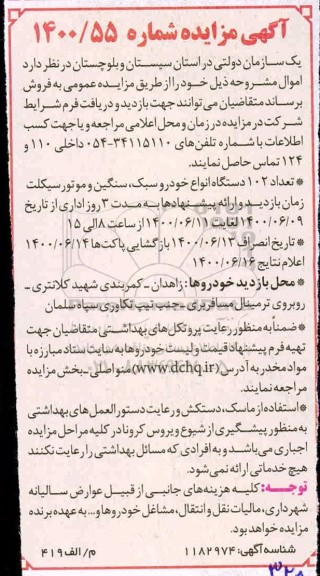 آگهی مزایده شماره ۱۴۰۰/۵۵
یک سازمان دولتی در استان سیستان و بلوچستان در نظر دارد
اموال مشروحه ذیل خود را از طریق مزایده عمومی به فروش
برساند متقاضیان می‌توانند جهت بازدید و دریافت فرم شرایط
شرکت در مزایده در زمان و محل اعلامی مراجعه و یا جهت کسب
اطلاعات با شماره تلفن‌های ۳۴۱۱۵۱۱۰-۰۵۴ داخلی ۱۱۰ و
۱۲۴ تماس حاصل نمایند.
* تعداد ۱۰۲ دستگاه انواع خودرو سبک، سنگین و موتورسیکلت
زمان بازدید و ارائه پیشنهادها به مدت ۳ روز اداری از تاریخ
۱۴۰۰/۰۶/۰۹ لغایت ۱۴۰۰/۰۶/۱۱ از ساعت ۸ الی ۱۵
* تاریخ انصراف ۱۴۰۰/۰۶/۱۳ بازگشایی پاکت‌ها ۱۴۰۰/۰۶/۱۴
اعلام نتایج ۱۴۰۰/۰۶/۱۶
* محل بازدید خودروها: زاهدان ـ کمربندی شهید کلانتری ـ
روبروی ترمینال مسافربری ـ جنب تیپ تکاوری سپاه سلمان
* ضمناً به منظور رعایت پروتکل‌های بهداشتی متقاضیان جهت
تهیه فرم پیشنهاد قیمت و لیست خودروها به سایت ستاد مبارزه با
مواد مخدر به آدرس (www.dchq.ir) منو اصلی ـ بخش مزایده
مراجعه نمایند.
* استفاده از ماسک، دستکش و رعایت دستورالعمل‌های بهداشتی
به منظور پیشگیری از شیوع ویروس کرونا در کلیه مراحل مزایده
اجباری می‌باشد و به افرادی که مسائل بهداشتی را رعایت نکنند
هیچ خدماتی ارائه نمی‌شود.
توجه: کلیه هزینه‌های جانبی از قبیل عوارض سالیانه
شهرداری، مالیات نقل و انتقال، مشاغل خودرو و... به عهده برنده
مزایده خواهد بود.
شناسه آگهی: ۱۱۸۲۹۷۴ م/الف ۴۱۹